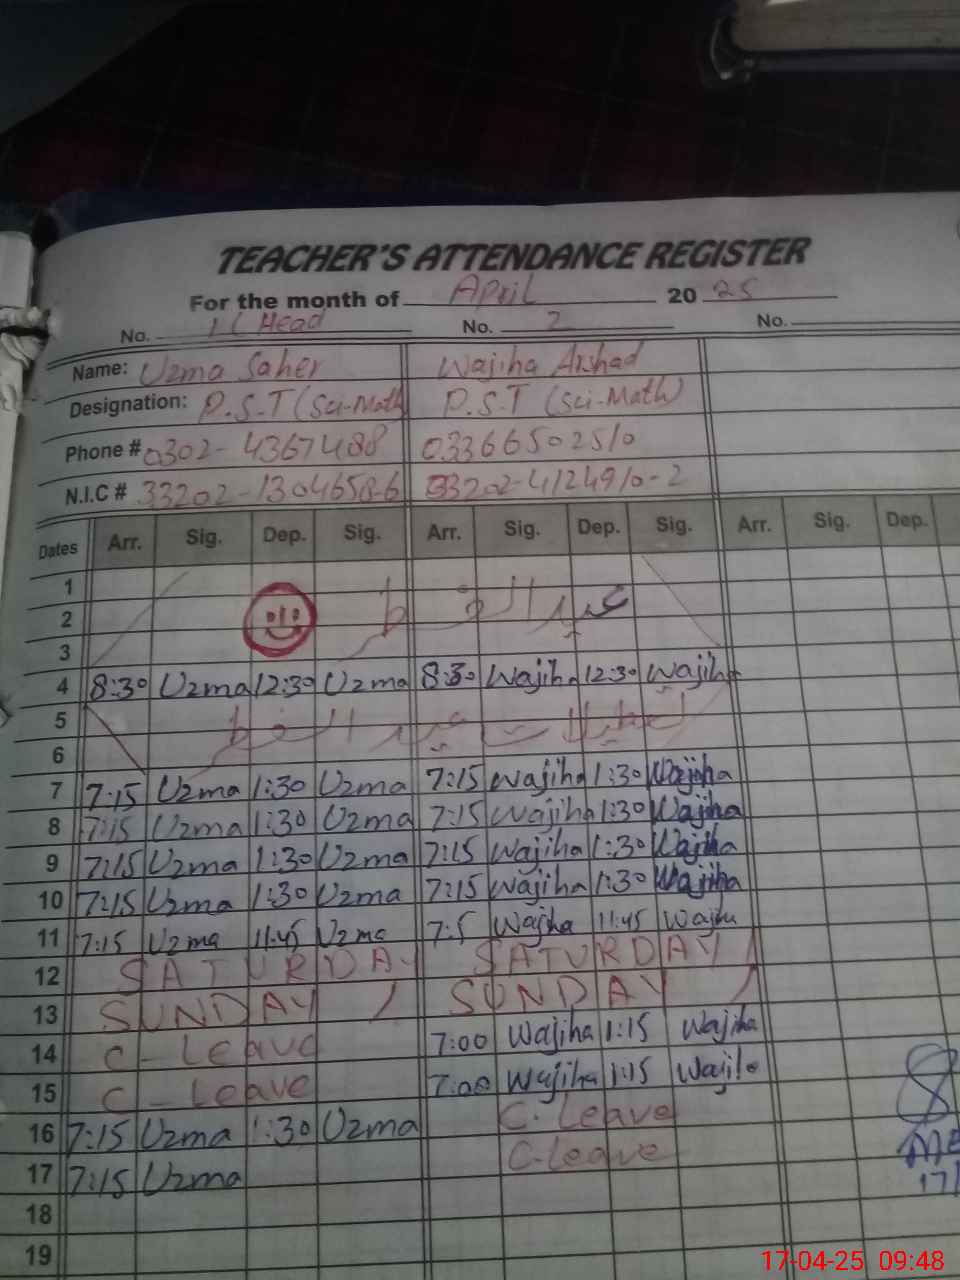 TEACHER'S ATTENDANCE REGISTER
For the month of April 2025
No. 1 (Head No. 2 No.
Name: Uzma Saher Wajiha Arshad
Designation: P.S.T (Sci-Math P.S.T (Sci-Math)
Phone # 0302-4367488 03366502510
N.I.C # 33202-1304658-6 33202-4124910-2
Dates Arr. Sig. Dep. Sig. Arr. Sig. Dep. Sig. Arr. Sig. Dep.
1
2 عید الفطر
3
4 8:30 Uzma 12:30 Uzma 8:30 Wajiha 12:30 Wajiha
5 تعطیلات عید الفطر
6
7 7:15 Uzma 1:30 Uzma 7:15 Wajiha 1:30 Wajiha
8 7:15 Uzma 1:30 Uzma 7:15 Wajiha 1:30 Wajiha
9 7:15 Uzma 1:30 Uzma 7:15 Wajiha 1:30 Wajiha
10 7:15 Uzma 1:30 Uzma 7:15 Wajiha 1:30 Wajiha
11 7:15 Uzma 11:45 Uzma 7:5 Wajiha 11:45 Wajiha
12 SATURDAY SATURDAY
13 SUNDAY SUNDAY
14 C-Leave 7:00 Wajiha 1:15 Wajiha
15 C-Leave 7:00 Wajiha 1:15 Wajiha
16 7:15 Uzma 1:30 Uzma C.Leave
17 7:15 Uzma C-Leave
18
19
17-04-25 09:48